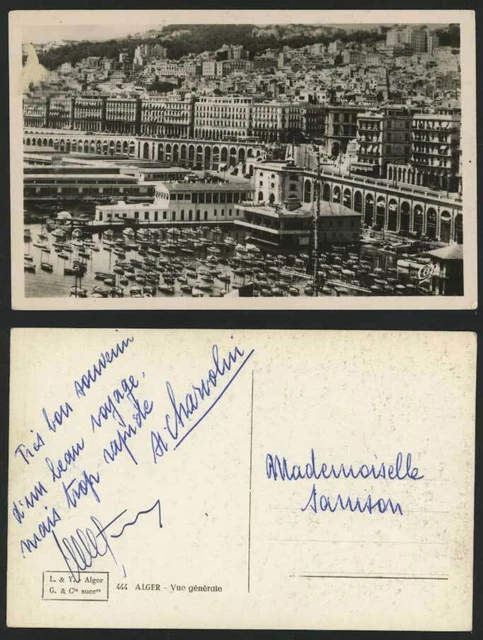 Très bon souvenir
d'un beau voyage,
mais trop rapide
St Charvolin
Mademoiselle
Samson
L. & Y. Alger
G. & Cie succrs
444 ALGER - Vue générale